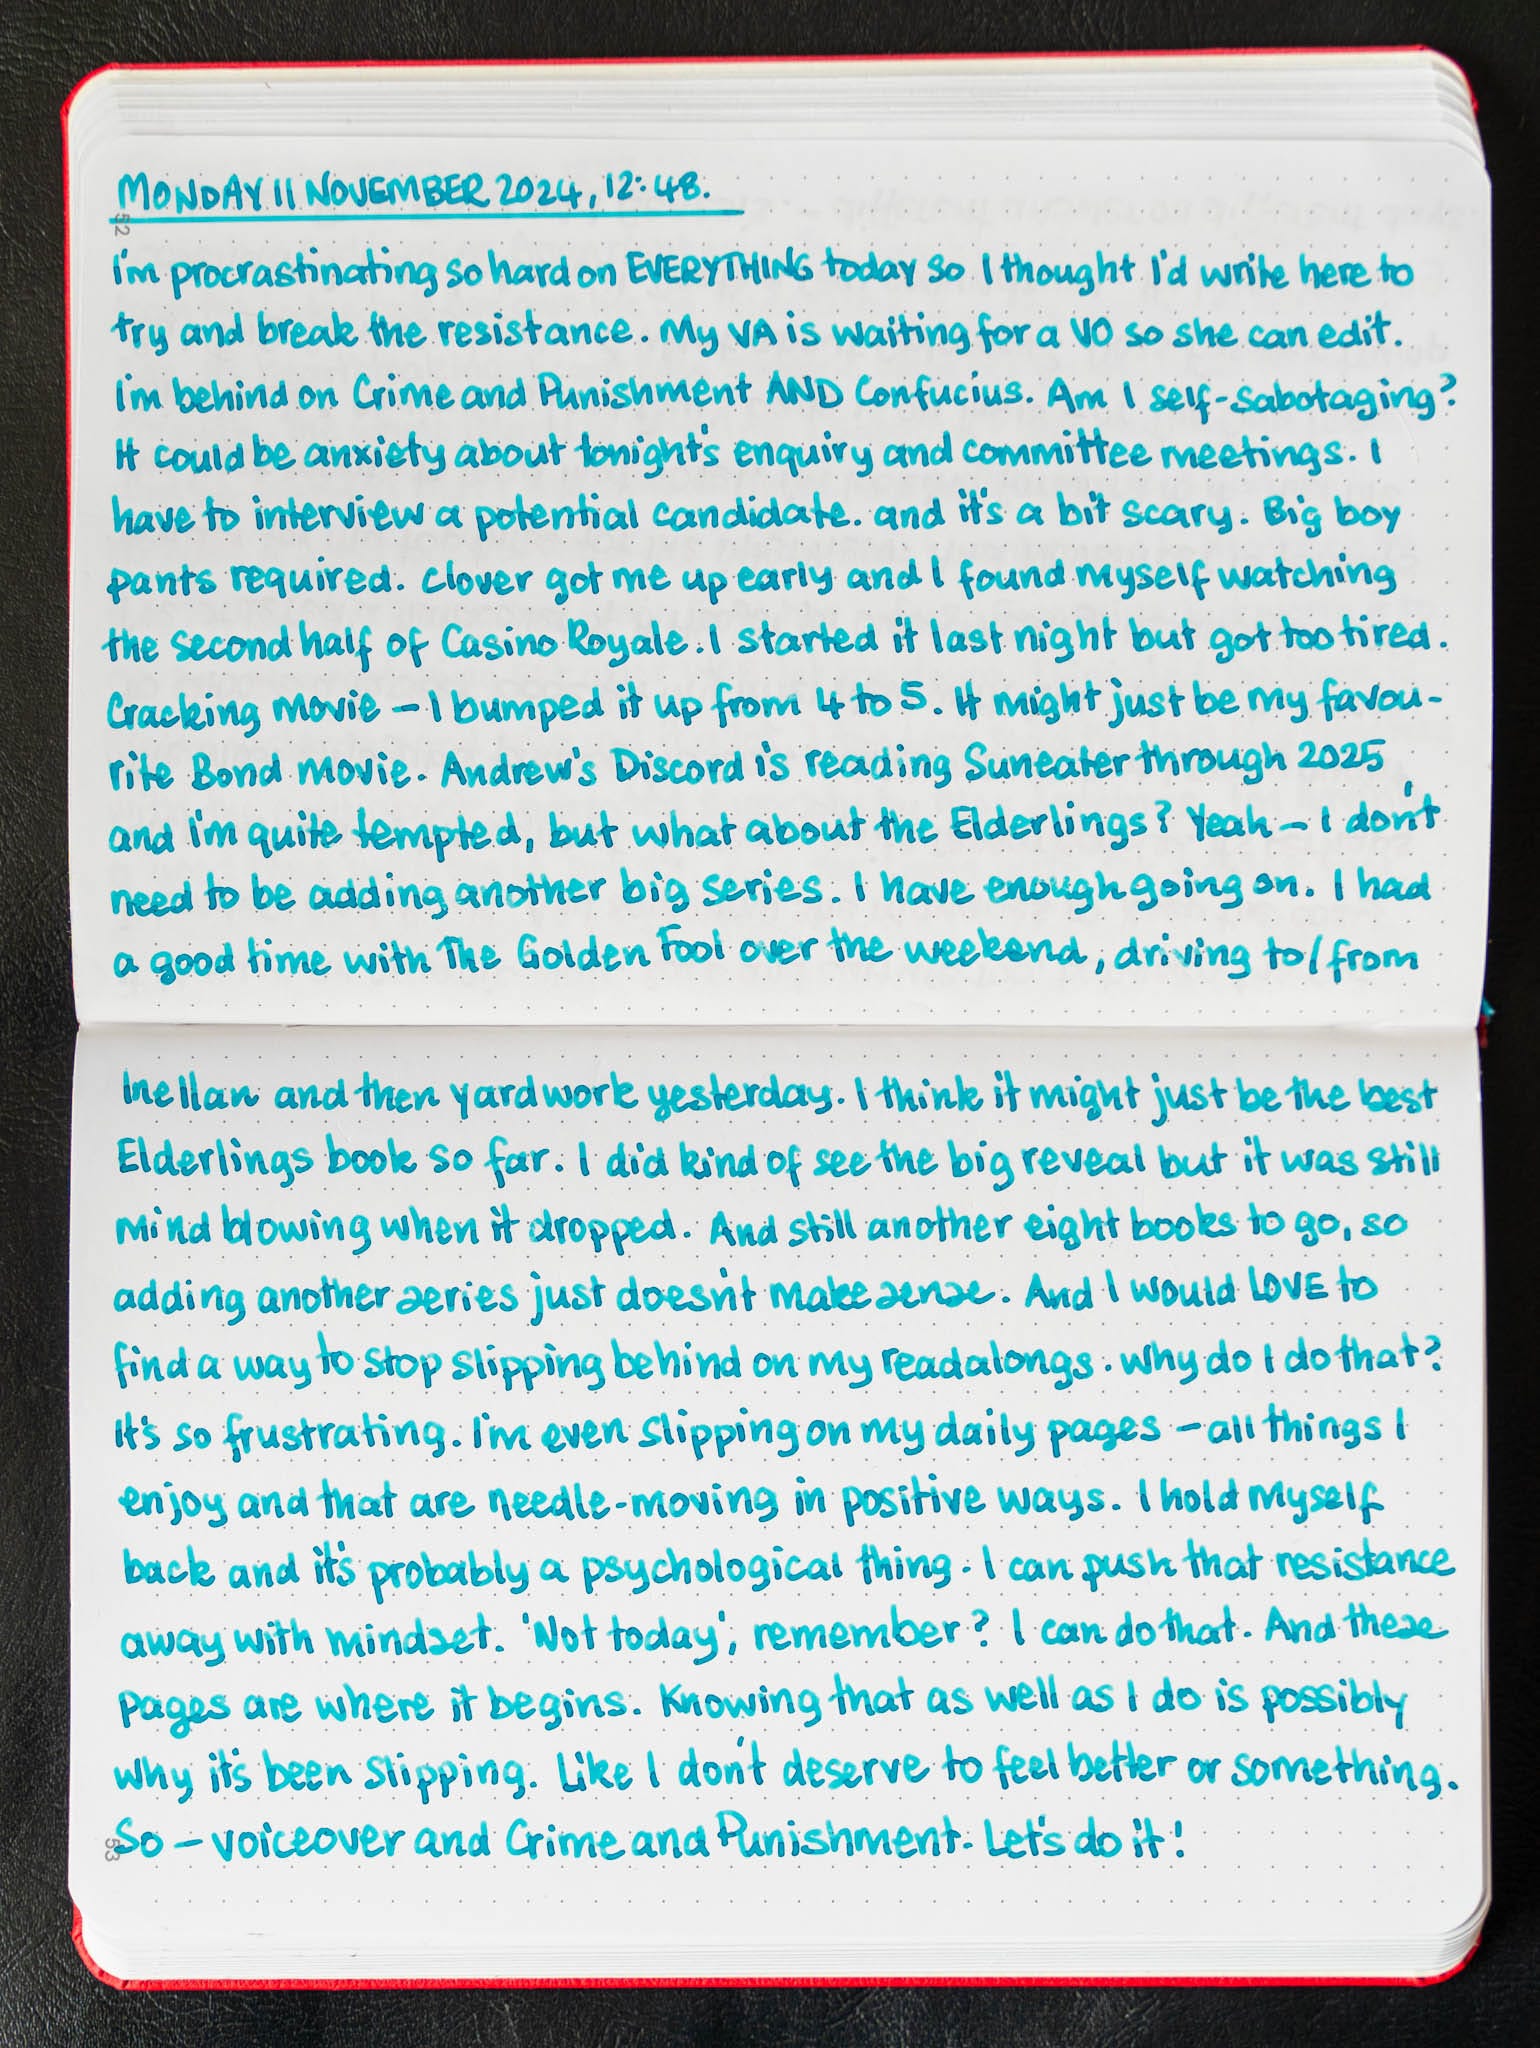 MONDAY 11 NOVEMBER 2024, 12:48.
52
I'm procrastinating so hard on EVERYTHING today so I thought I'd write here to
try and break the resistance. My VA is waiting for a VO so she can edit.
I'm behind on Crime and Punishment AND Confucius. Am I self-sabotaging?
It could be anxiety about tonight's enquiry and committee meetings. I
have to interview a potential candidate. and it's a bit scary. Big boy
pants required. Clover got me up early and I found myself watching
the second half of Casino Royale. I started it last night but got too tired.
Cracking movie – I bumped it up from 4 to 5. It might just be my favou-
rite Bond movie. Andrew's Discord is reading Suneater through 2025
and I'm quite tempted, but what about the Elderlings? Yeah – I don't
need to be adding another big series. I have enough going on. I had
a good time with The Golden Fool over the weekend, driving to/from
Inellan and then yardwork yesterday. I think it might just be the best
Elderlings book so far. I did kind of see the big reveal but it was still
mind blowing when it dropped. And still another eight books to go, so
adding another series just doesn't make sense. And I would LOVE to
find a way to stop slipping behind on my readalongs. Why do I do that?
It's so frustrating. I'm even slipping on my daily pages – all things I
enjoy and that are needle-moving in positive ways. I hold myself
back and it's probably a psychological thing. I can push that resistance
away with mindset. 'Not today', remember? I can do that. And these
pages are where it begins. Knowing that as well as I do is possibly
why it's been slipping. Like I don't deserve to feel better or something.
So – voiceover and Crime and Punishment. Let's do it!
53